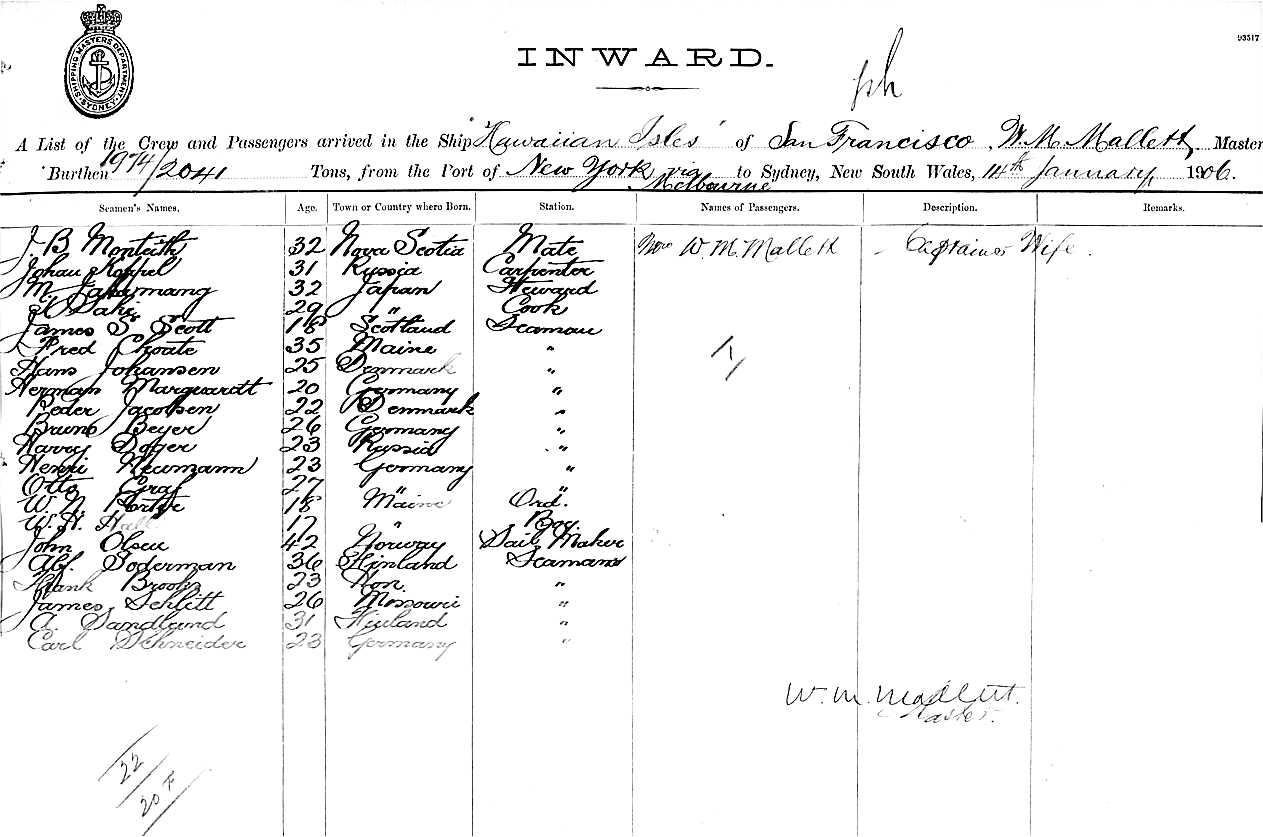 SHIPPING MASTERS DEPARTMENT SYDNEY
93517
INWARD.
A List of the Crew and Passengers arrived in the Ship "Hawaiian Isles" of San Francisco, W. M. Mallett, Master
Burthen 1974/2041 Tons, from the Port of New York via Melbourne to Sydney, New South Wales, 14th January 1906.
Seamen's Names. Age. Town or Country where Born. Station. Names of Passengers. Description. Remarks.
J. B. Monteith 32 Nova Scotia Mate Mrs W. M. Mallett - Captains Wife.
Johan 31 Russia Carpenter
M. 32 Japan Steward
Saki 29 " Cook
James S. Scott 18 Scotland Seaman
Fred Choate 35 Maine "
Hans Johansen 25 Denmark "
Herman Marquardt 20 Germany "
Peder Jacobsen 22 Denmark "
Bruno Beyer 26 Germany "
Harry 23 Russia "
Henri Neumann 23 Germany "
Otto Graf 27 " "
W. N. Porter 18 Maine Ord.
W. H. Hall 17 " Boy
John Olsen 42 Norway Sail Maker
Alf. Soderman 36 Finland Seamans
Frank Brooks 23 Hon. "
James Schlitt 26 Missouri "
A. Sandlund 31 Finland "
Carl Schneider 23 Germany "
W. M. Mallett.
Master.
22
20 F